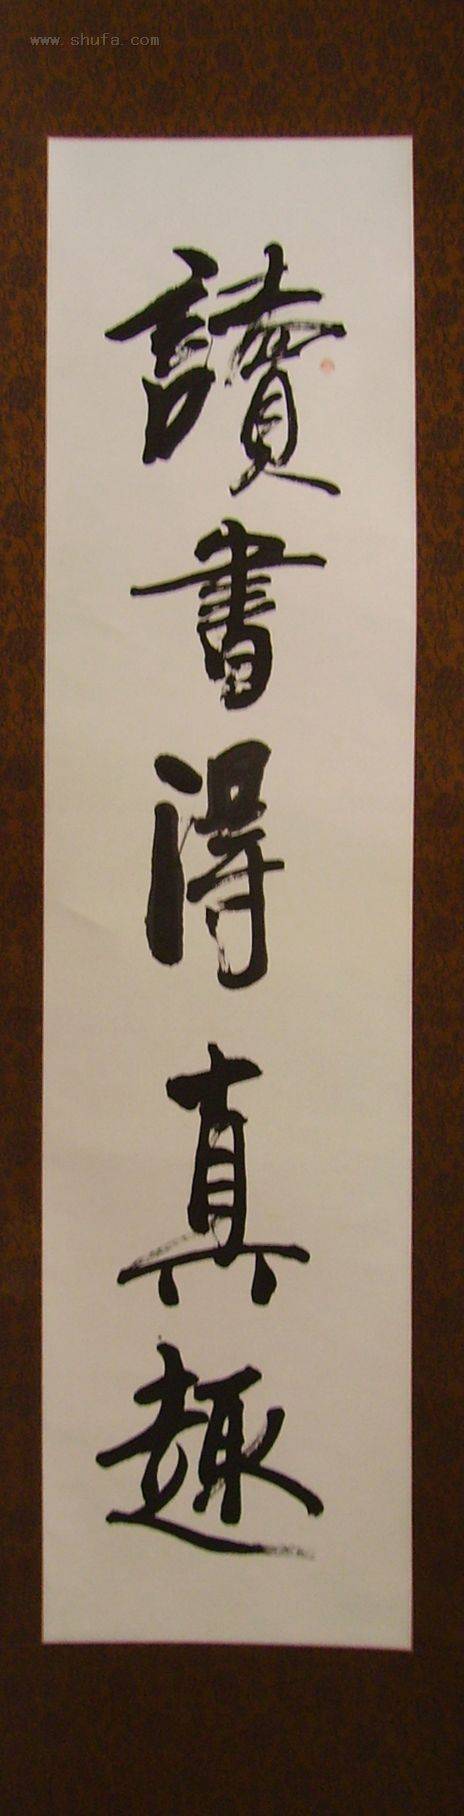 www.shufa.com
讀書得真趣